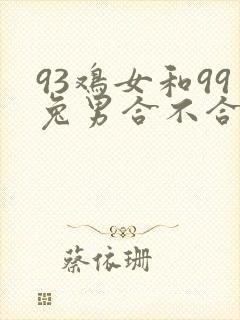 93鸡女和99
兔男合不合
蔡依珊